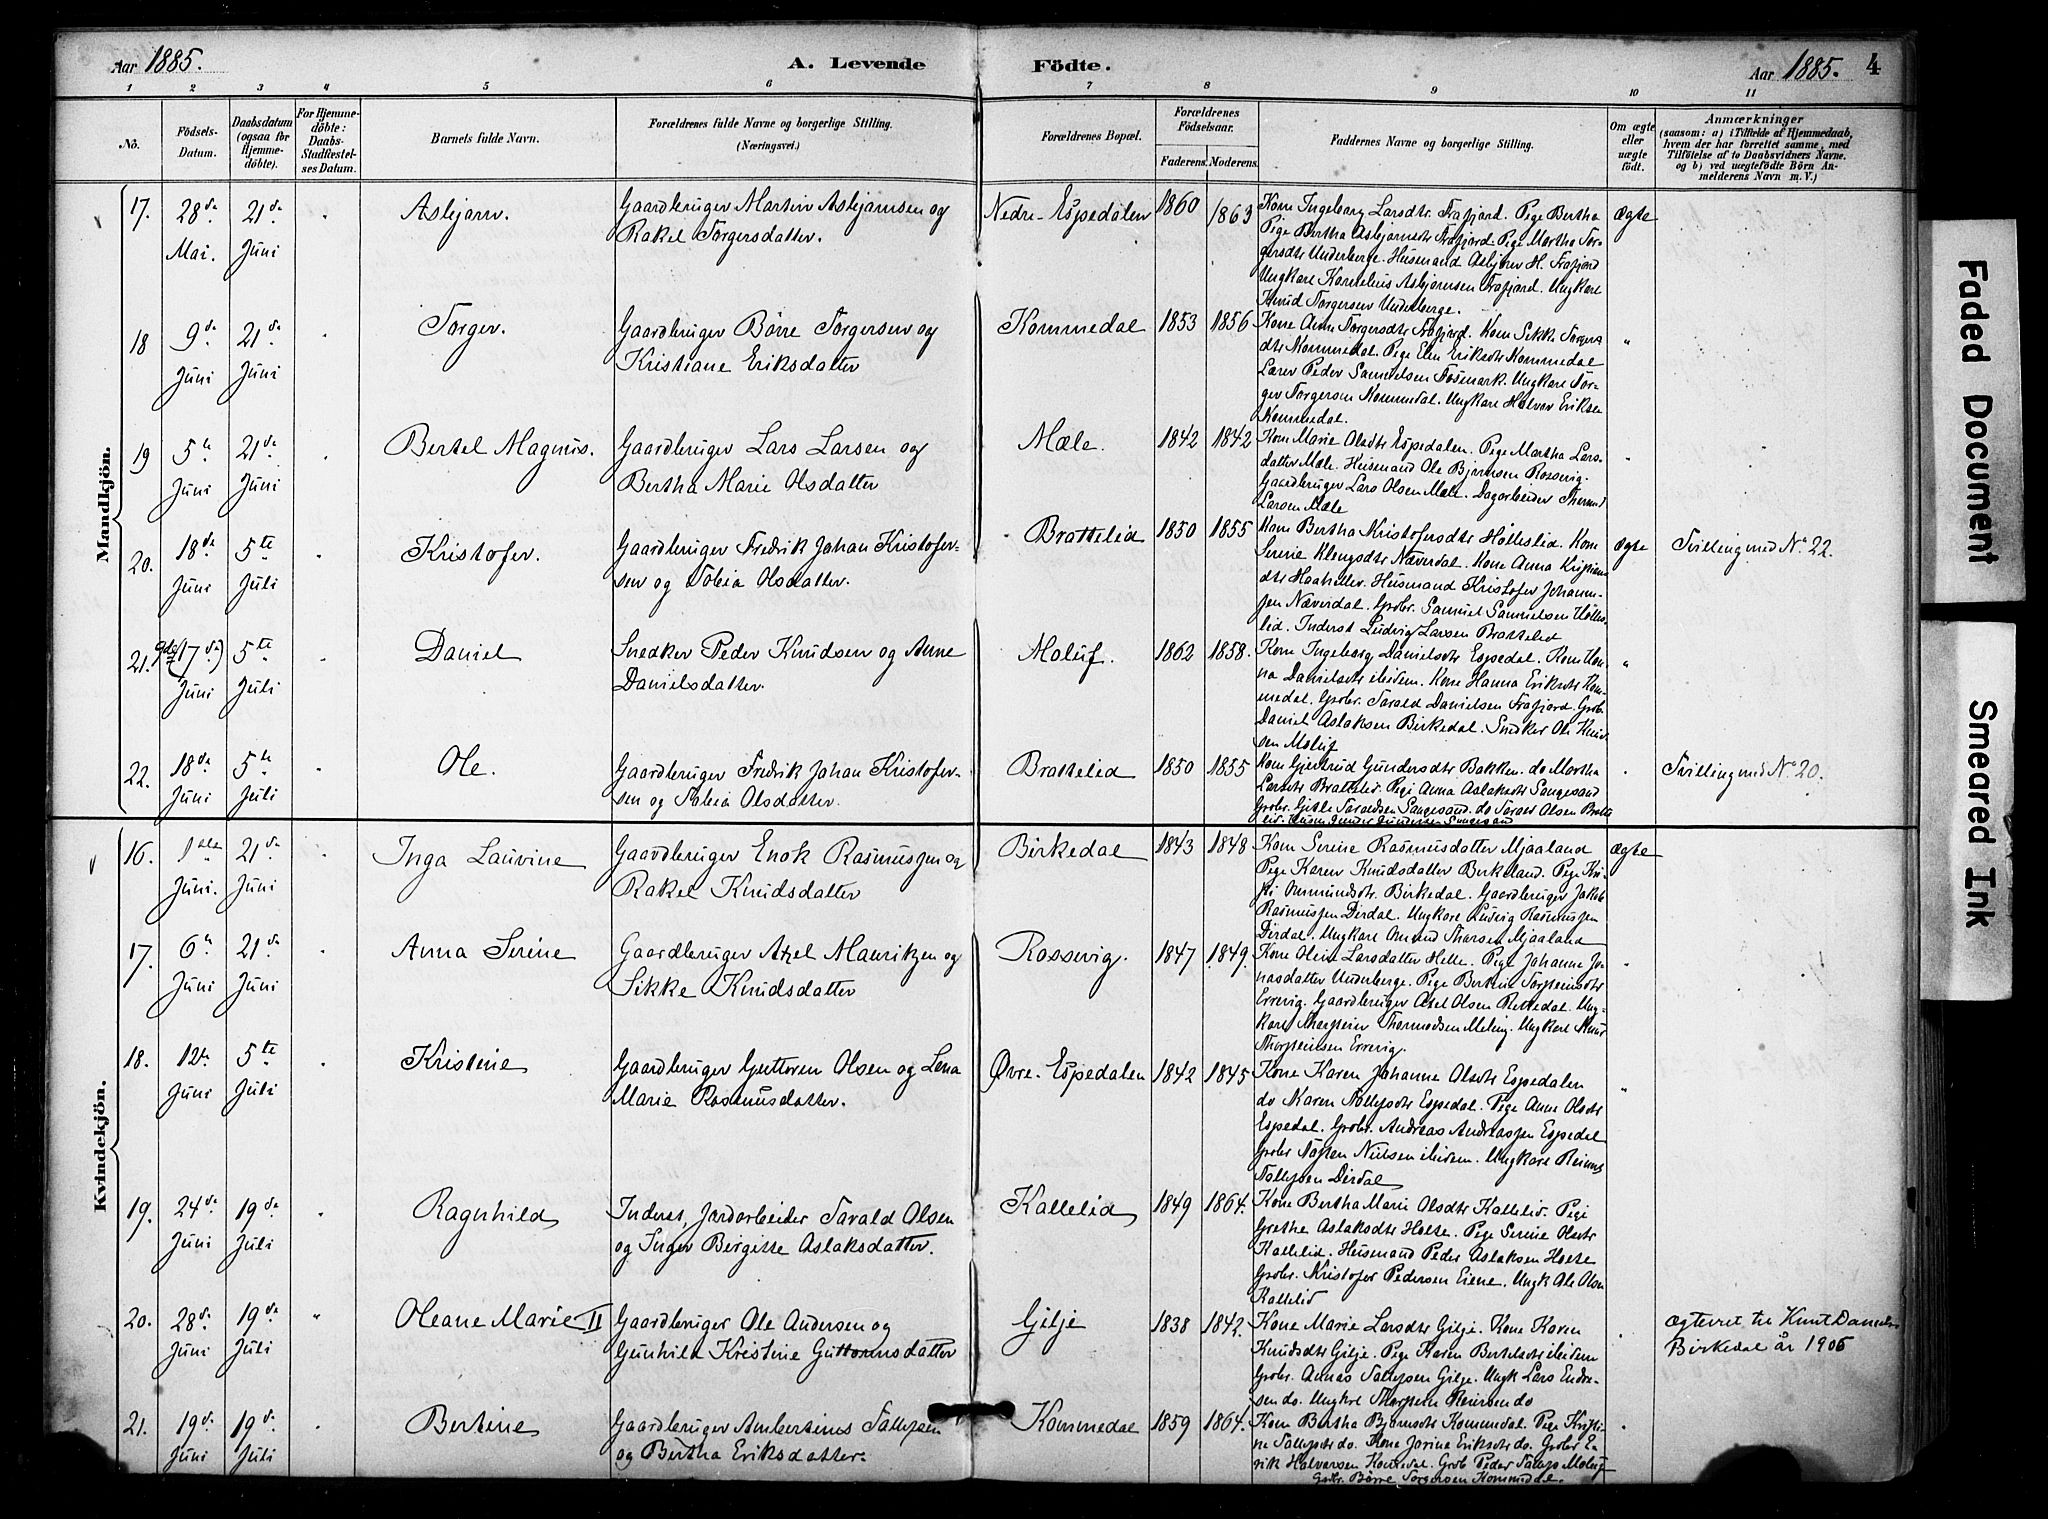 Aar 1885.
A. Levende Födte.
Aar 1885. 4
1 2 3 4 5 6 7 8 9 10 11
No.
Födsels-Datum.
Daabsdatum (ogsaa for Hjemmedöbte).
For Hjemmedöbte: Daabs-Stadfæstelses Datum.
Barnets fulde Navn.
Forældrenes fulde Navne og borgerlige Stilling.
(Næringsvei.)
Forældrenes Bopæl.
Forældrenes Födselsaar.
Faderens. Moderens.
Faddernes Navne og borgerlige Stilling.
Om ægte eller uægte födt.
Anmærkninger
(saasom: a) i Tilfælde af Hjemmedaab,
hvem der har forrettet samme, med
Tilföielse af to Daabsvidners Navne.
og b) ved uægtefödte Börn Anmelderens Navn m. V.)
Mandkjön.
17. 28de Mai. 21de Juni
Asbjørn.
Gaardbruger Martin Asbjørnsen og
Rakel Torgersdatter.
Nedre-Espedalen 1860 1863
Kone Ingeborg Larsdtr. Frafjord. Pige Bertha
Pige Bertha Asbjørnsdtr Frafjord. Pige Martha Tor-
gersdtr Underberge. Husmand Asbjørn H. Frafjord
Ungkarl Kornelius Asbjørnsen Frafjord. Ungkarl
Knud Torgersen Underberge.
Ægte
18 9de Juni 21de Juni
Torger.
Gaardbruger Börre Torgersen og
Kristiane Eriksdatter
Kommedal 1853 1856
Kone Anna Torgersdtr Frafjord. Kone Sikke Torgers
dtr Kommedal. Pige Elen Eriksdtr Kommedal
Lærer Peder Samuelsen Fosmark. Ungkarl Tor-
ger Torgersen Kommedal. Ungkarl Halvor Eriksen
Kommedal.
"
19 5te Juni 21de Juni
Bertel Magnus.
Gaardbruger Lars Larsen og
Bertha Marie Olsdatter
Mæle. 1842 1842
Kone Marie Olsdtr Espedalen. Pige Martha Lars-
datter Mæle. Husmand Ole Bjørnsen Rossevig.
Gaardbruger Lars Olsen Mæle. Dagarbeider
Larsen Mæle
"
20. 18de Juni 5te Juli
Kristofer.
Gaardbruger Fredrik Johan Kristofer-
sen og Tobia Olsdatter.
Brattelid 1850 1855
Kone Bertha Kristofersdtr Hölleslid. Kone
Serine Klengsdtr Næverdal. Kone Anna
dtr Haahellor. Husmand Kristofer Johann-
sen Næverdal. Grdbr. Samuel Samuelsen Hölles-
lid. Inderst Ludvig Larsen Brattelid
ægte
Tvilling med No. 22.
21. 9de (17de) Juni 5te Juli
Daniel
Snedker Peder Knudsen og Anne
Danielsdatter.
Moluf. 1862 1858.
Kone Ingeborg Danielsdtr Espedal. Kone Han-
na Danielsdtr ibidem. Kone Hanna Eriksdtr Kom-
medal. Grdbr. Tarald Danielsen Frafjord. Grdb.
Daniel Aslaksen Birkedal. Snedker Ole Knud-
sen Moluf
"
22. 18de Juni 5te Juli
Ole.
Gaardbruger Fredrik Johan Kristofer-
sen og Tobia Olsdatter.
Brattelid 1850 1855
Kone Gjertrud Gundersdtr Bakken. do Martha
Larsdtr Brattelid. Pige Anna Aslaksdtr Sangesand
Grdbr. Gitle Taraldsen Sangesand. do Tarald Olsen Bratte-
lid.
Tvilling med No. 20.
Kvindekjön.
16. 1ste Juni. 21de Juni
Inga Lauvine
Gaardbruger Enok Rasmussen og
Rakel Knudsdatter
Birkedal 1843 1848
Kone Serine Rasmusdatter Mjaaland
Pige Karen Knudsdatter Birkeland. Pige
Ommundsdtr. Birkedal. Gaardbruger Jakob
Rasmussen Dirdal. Ungkarl Ludvig Rasmussen
Dirdal. Ungkarl Omund Thorsen Mjaaland
Ægte
17. 6te Juni 21de Juni
Anna Serine
Gaardbruger Axel Mauritzen og
Sikke Knudsdatter
Rossevig. 1847 1849.
Kone Oline Larsdatter Helle. Pige Johanne Jo-
nasdatter Underberge. Pige Bertine Torsteinsdtr
Eirevig. Gaardbruger Axel Olsen Rettedal. Ung-
karl Thorstein Thormodsen Meling. Ungkarl Knud
Thorsteinsen Eirevig.
"
18. 12te Juni 5te Juli
Kristine
Gaardbruger Guttorm Olsen og Lena
Marie Rasmusdatter.
Øvre-Espedalen 1842 1845
Kone Karen Johanne Olsdtr Espedalen
do Karen Tollefsdtr Espedal. Pige Anne Olsdtr
Espedal. Grdbr. Andreas Andreassen Espedal
Grdbr Tosten Nielsen ibidem. Ungkarl
Tollefsen Dirdal
"
19. 24de Juni 19de Juli
Ragnhild
Inderst, Jordarbeider Tarald Olsen
og Inger Birgitte Aslaksdatter.
Kallelid 1849 1864.
Kone Bertha Marie Olsdtr Kallelid. Pige
Grethe Aslaksdtr Holte. Pige Serine Olsdtr
Kallelid. Husmand Peder Aslaksen Holte
Grdbr. Kristofer Pedersen Eiene. Ungk Ole Olsen
Kallelid
20. 28de Juni 19de Juli
Oleane Marie II
Gaardbruger Ole Andersen og
Gunhild Kristine Guttormsdatter
Gilje 1838 1842.
Kone Marie Larsdtr Gilje. Kone Karen
Knudsdtr Gilje. Pige Karen Bertelsdtr ibidem
Grdbr. Tollefsen Gilje. Ungk Lars Endre-
sen do. Ungkarl Thorstein Reiersen do
Ægteviet til Knut Daniels.
Birkedal år 1906
21. 19de Juni 19de Juli
Bertine
Gaardbruger Ambertinus Tollefsen
og Bertha Eriksdatter.
Kommedal 1859 1864.
Kone Bertha Bjørnsdtr Kommedal. Pige Kristi-
ne Tollefsdtr do. Kone Jorine Eriksdtr do. Grdbr E-
rik Halvorsen Kommedal. Grdb Peder Moluf
Grdbr. Börre Torgersen Kommedal.
Faded Document
Smeared Ink